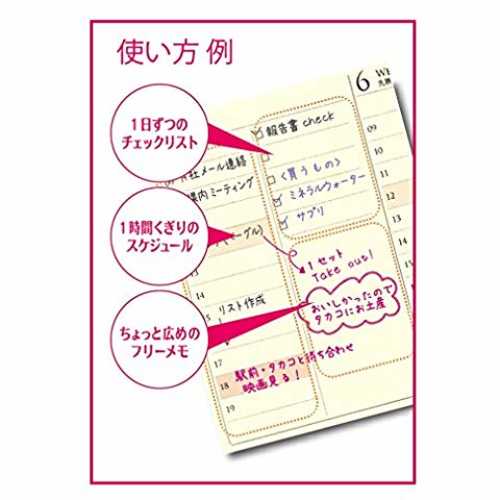 使い方 例
1日ずつの
チェックリスト
1時間くぎりの
スケジュール
ちょっと広めの
フリーメモ
6 WE
先勝
報告書 check
社メール連絡
内ミーティング
<買うもの>
ミネラルウォーター
サプリ
ーグル)
1セット
Take out!
おいしかったので
タカコにお土産
リスト作成
駅前・タカコと待ち合わせ
映画見る!
13
14
15
18
19
09
10
11
12
13
14
15
16
17
18